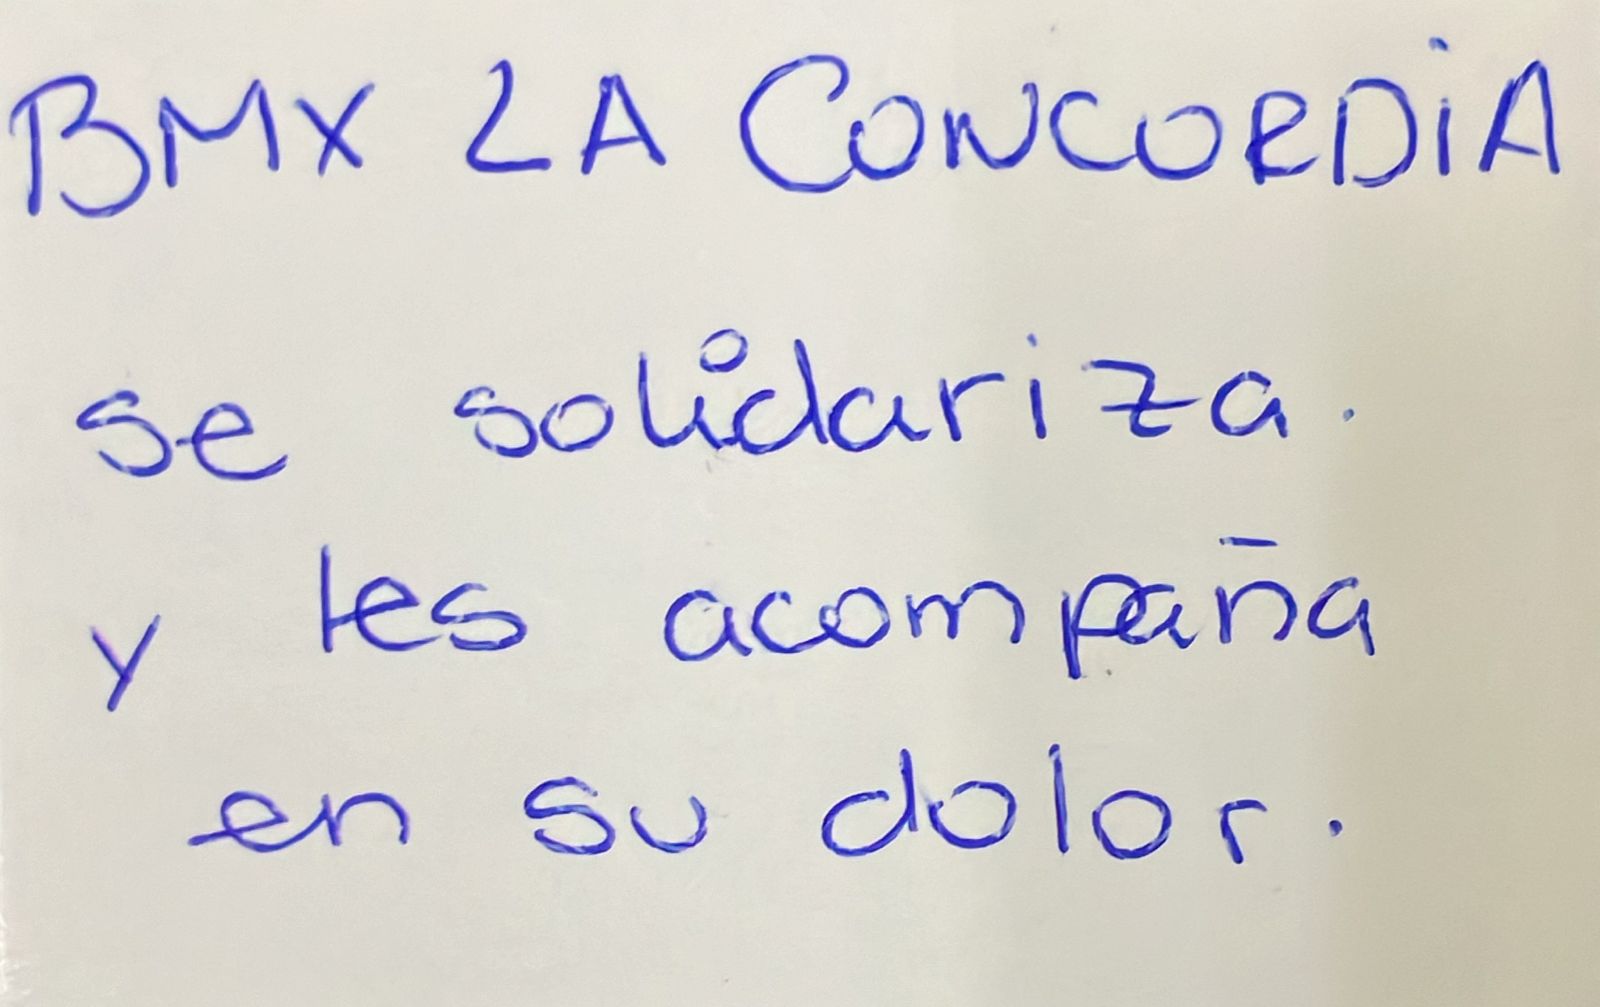 BMX LA CONCORDIA
se solidariza.
y les acompaña
en su dolor.